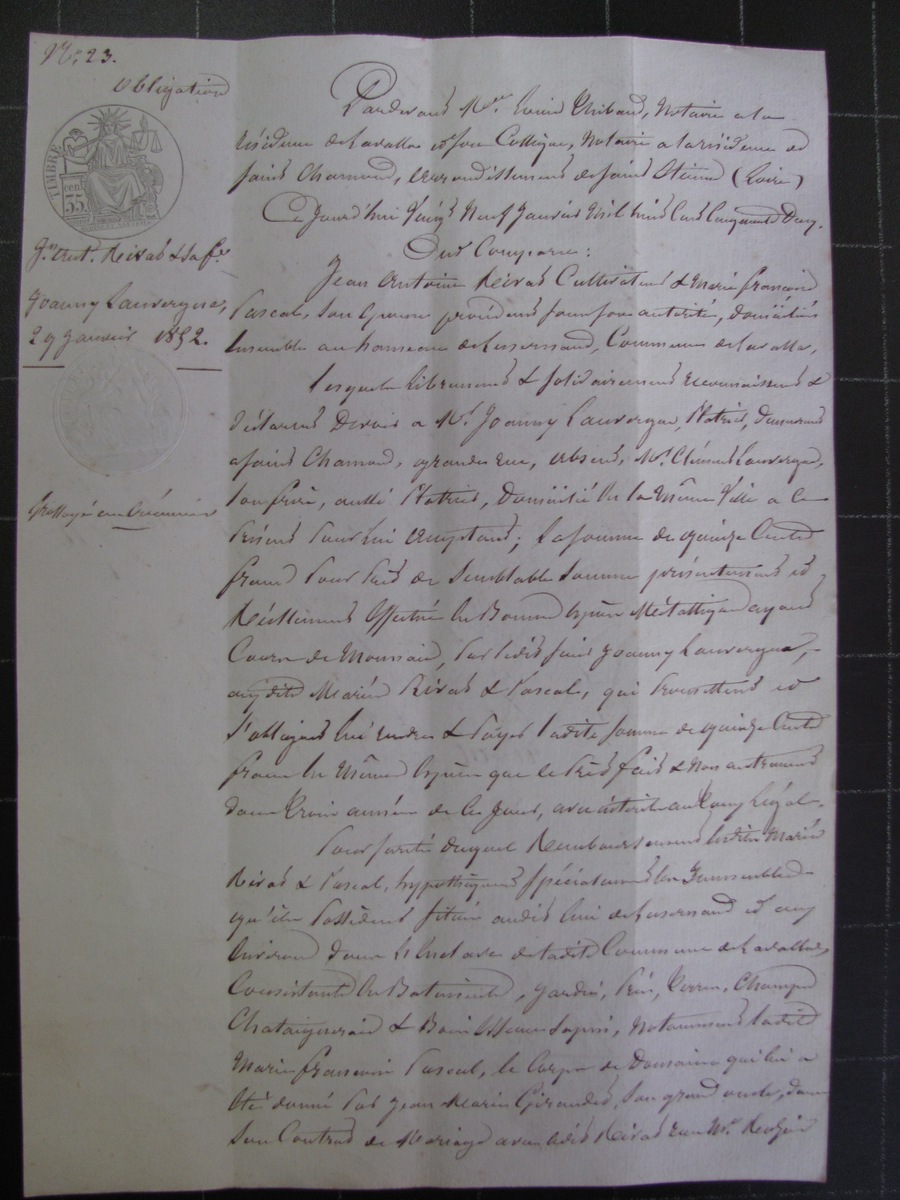 N° 23.
Obligation
TIMBRE
cen.
35
Jn. Ant. Rivat & sa fe.
à
Joanny Lauvergne,
29 Janvier 1852.
Grossoyé au Créancier
Pardevant Me. Thibaud, Notaire a la
résidence de Lavalla et son Collègue, Notaire a la résidence de
saint Chamond, arrondissement de saint Etienne (Loire)
Ce Jourd'hui Vingt Neuf Janvier Mil huit Cent Cinquante Deux.
Ont Comparu:
Jean Antoine Rivat Cultivateur & Marie françoise
Pascal, Son Epouse procédant sous son autorité, Domiciliés
Ensemble au hameau de Luzernaud, Commune de Lavalla,
Lesquels librement & solidairement reconnaissent &
déclarent Devoir a Mr. Joanny Lauvergne, Platrier, Demeurant
a saint Chamond, grande rue, absent, Mr. Clément Lauvergne,
son frère, aussi Platrier, Domicilié En la Même Ville a ce
Présent Pour lui acceptant; La somme de quinze Cents
francs Pour Prêt de Semblable Somme présentement et
Réellement Effectué En Bonnes Espèces Métalliques ayant
Cours de Monnaie, Par ledit sieur Joanny Lauvergne,
auxdits Mariés Rivat & Pascal, qui Promettent et
s'obligent lui rendre & Payer ladite somme de quinze Cents
francs En Mêmes Espèces que le Prêt fait & Non autrement
dans Trois années de Ce Jour, avec intérêts au Taux Légal.
Pour sureté duquel Remboursement lesdits Mariés
Rivat & Pascal, hypothèquent spécialement les Immeubles
qu'ils Possèdent situés audit lieu de Luzernaud et aux
Environs dans L'Enclave de ladite Commune de Lavalla,
Consistants En Batiments, Jardin, Prés, Terres, Champs
Chataigneraie & Bois Essence Sapin, Notamment ladite
Marie françoise Pascal, le Corps de Domaine qui lui a
Été donné Par Jean Marie Girandet, Son grand oncle, dans
Son Contrat de Mariage avec ledit Rivat reçu Me.